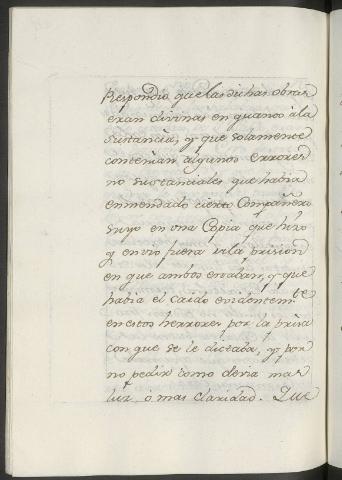 Respondio que las dichas obras
eran divinas en quanto à la
sustancia, y que solamente
contenian algunos errores
no sustanciales que havia
enmendado cierto Compañero
suyo en una Copia que hizo
y envio fuera de la prision
en que ambos estaban, y que
havia el caido evidentemte
en estos herrores por la prisa
con que se le dictaba, y por
no pedir como devia mas
luz, ò mas claridad. Que